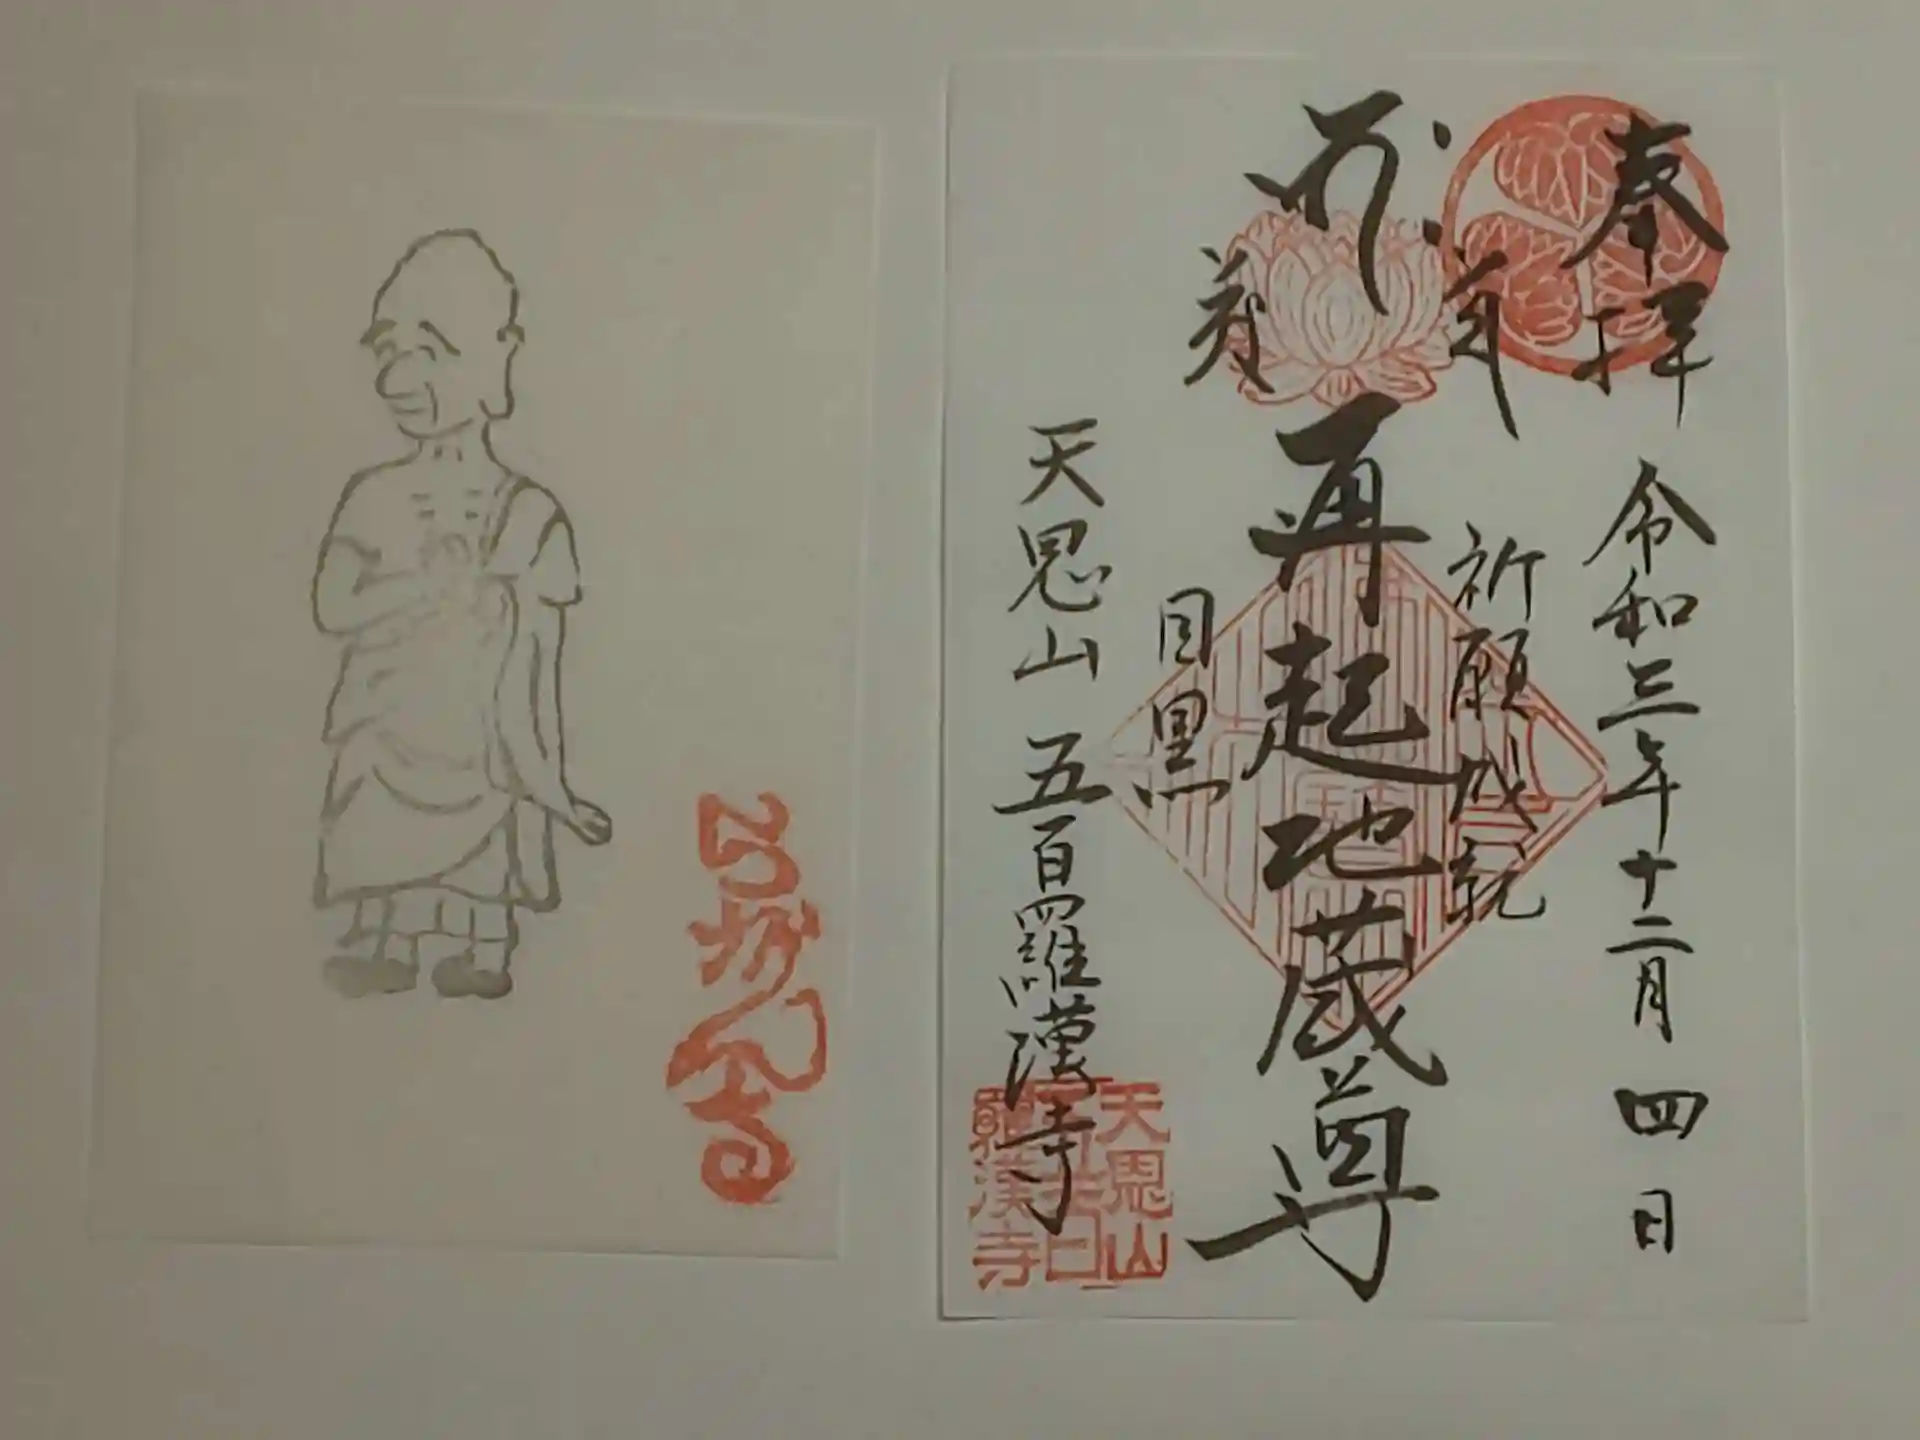 奉拝
令和三年十二月四日
祈願成就
再起地蔵尊
目黒
天恩山 五百羅漢寺
天恩山
羅漢寺